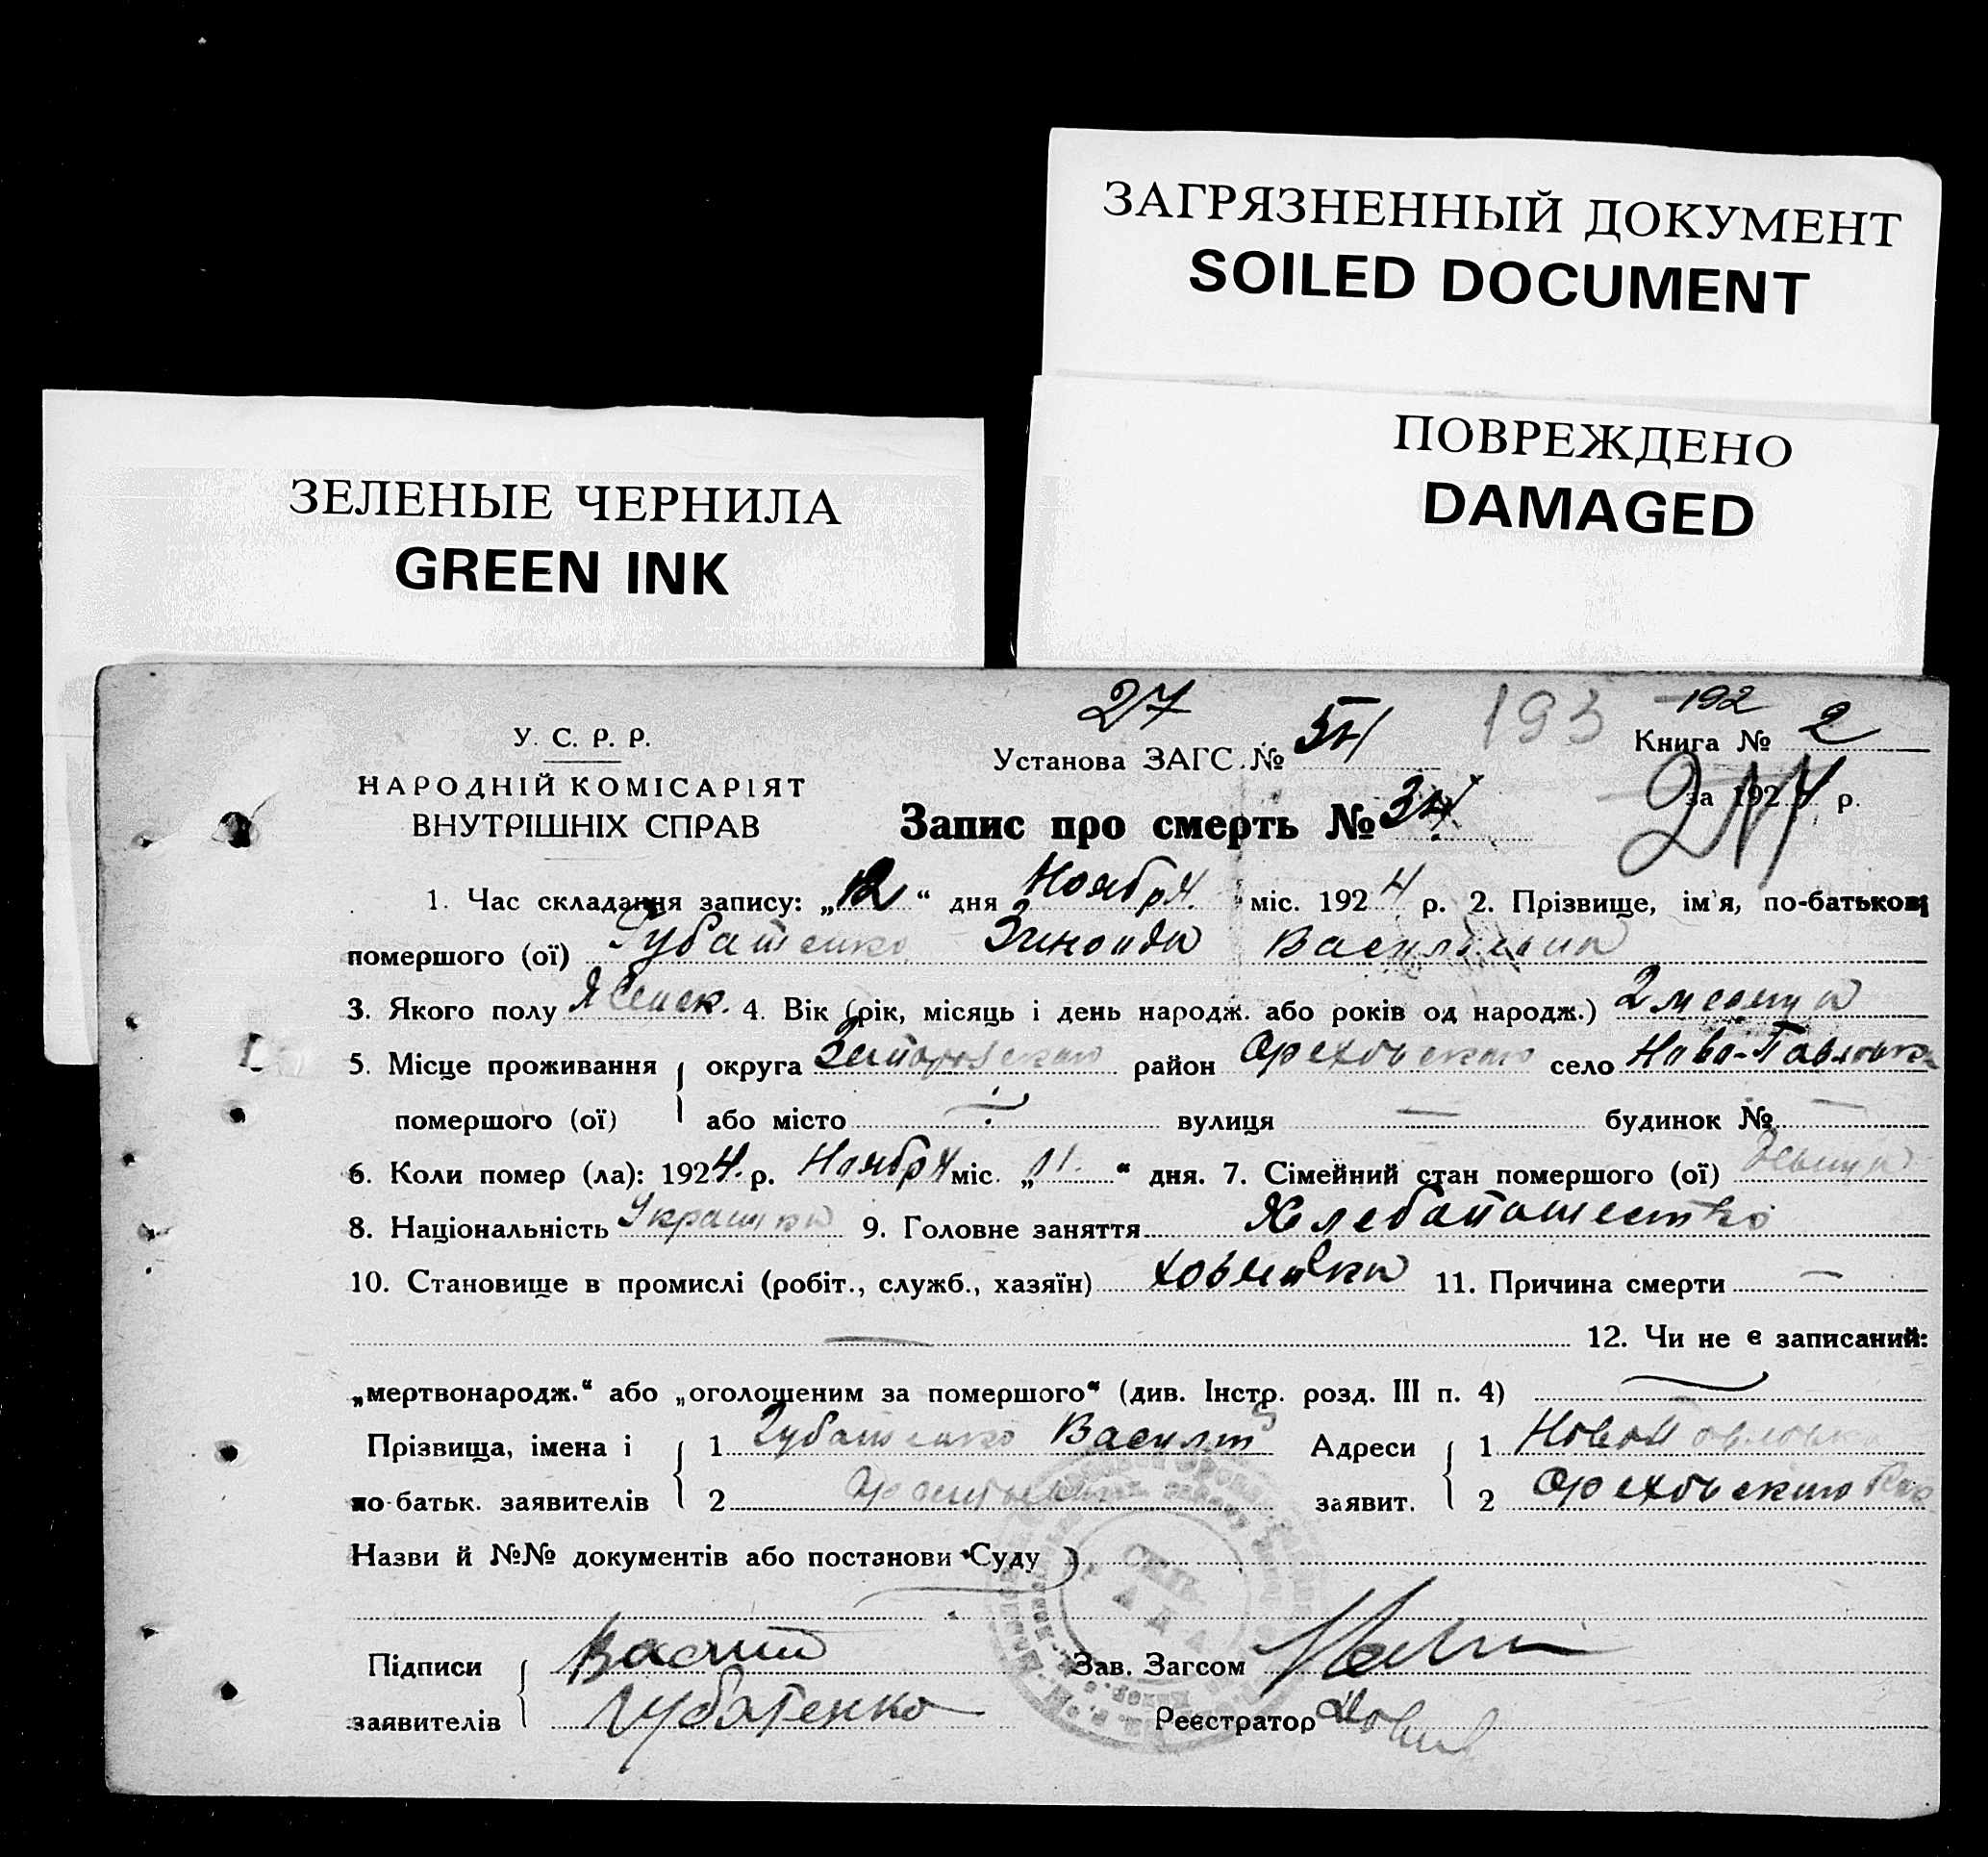 ЗАГРЯЗНЕННЫЙ ДОКУМЕНТ
SOILED DOCUMENT
ПОВРЕЖДЕНО
DAMAGED
ЗЕЛЕНЫЕ ЧЕРНИЛА
GREEN INK
27 193 192
У. С. Р. Р.
НАРОДНІЙ КОМІСАРІЯТ
ВНУТРІШНІХ СПРАВ
Установа ЗАГС №
Книга № 2
за 1924 р.
Запис про смерть № 34
1. Час складання запису: „12“ дня Ноября міс. 1924 р. 2. Прізвище, ім'я, по-батькові
помершого (ої) Губатенко Зинаида Васильевна
3. Якого полу Женск. 4. Вік (рік, місяць і день народж. або років од народж.) 2 месяца
5. Місце проживання округа район Ореховского село Ново-Павловка
помершого (ої) або місто — вулиця — будинок № —
6. Коли помер (ла): 1924 р. Ноября міс. „11.“ дня. 7. Сімейний стан помершого (ої) девица
8. Національність Украинка 9. Головне заняття Хлебопашество
10. Становище в промислі (робіт., служб., хазяїн) 11. Причина смерти —
— 12. Чи не є записаний:
„мертвонародж.“ або „оголошеним за помершого“ (див. Інстр. розд. III п. 4) —
Прізвища, імена і 1 Губатенко Василий Адреси 1 Новопавловка
по-батьк. заявителів 2 заявит. 2 Ореховского
Назви й №№ документів або постанови Суду
Підписи Василий Зав. Загсом
заявителів Губатенко Реєстратор